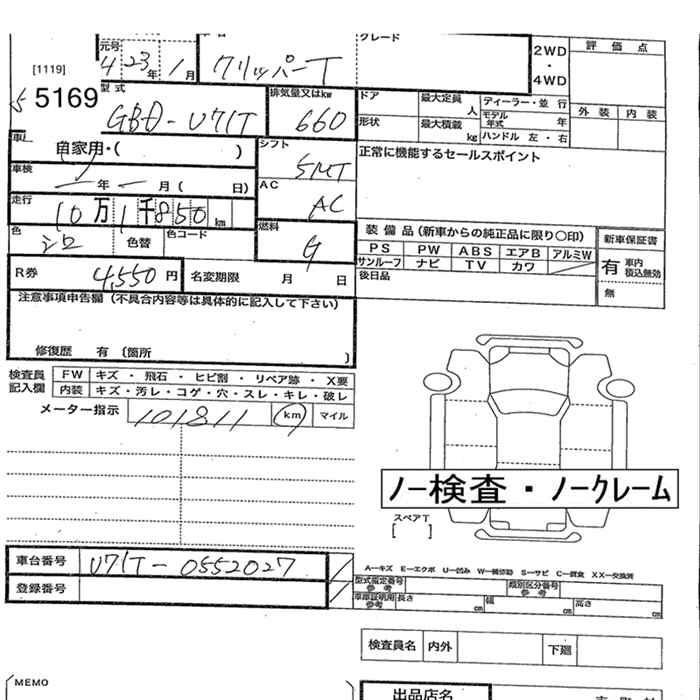 元号 車名 グレード
4 23年 1月 クリッパーT
[1119]
5169
型式 排気量又はkw
GBD-U71T 660
ドア 最大定員 人 ディーラー・並行
形状 最大積載 kg モデル年式 年
ハンドル 左・右
2WD・4WD
評価点
外装 内装
自家用・( )
シフト 5MT
車検 年 月( 日)
AC AC
正常に機能するセールスポイント
走行 10万1千850km
燃料 G
色 シロ 色替 色コード
装備品(新車からの純正品に限り○印) 新車保証書
PS PW ABS エアB アルミW
サンルーフ ナビ TV カワ
有 車内積込無効
無
後日品
R券 4,550円 名変期限 月 日
注意事項申告欄(不具合内容等は具体的に記入して下さい)
修復歴 有〔箇所 〕
検査員記入欄 FW キズ・飛石・ヒビ割・リペア跡・X要
内装 キズ・汚レ・コゲ・穴・スレ・キレ・破レ
メーター指示 101811 km マイル
ノー検査・ノークレーム
スペアT
[ ]
車台番号 U71T-0552027
登録番号
A-キズ E-エクボ U-凹み W-補修跡 S-サビ C-腐食 XX-交換済
型式指定番号 参考 類別区分番号 参考
車庫証明用 参考 長さ cm 幅 cm 高さ cm
検査員名 内外 下廻
MEMO
出品店名